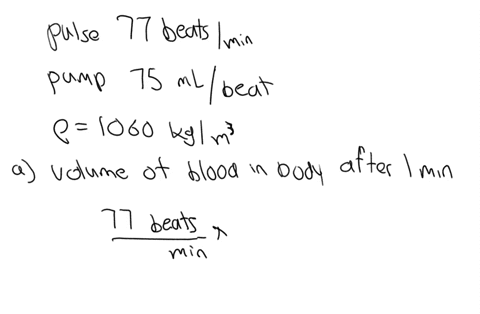 pulse 77 beats/min
pump 75 mL/beat
ρ = 1060 kg/m³
a) volume of blood in body after 1 min
77 beats / min ×